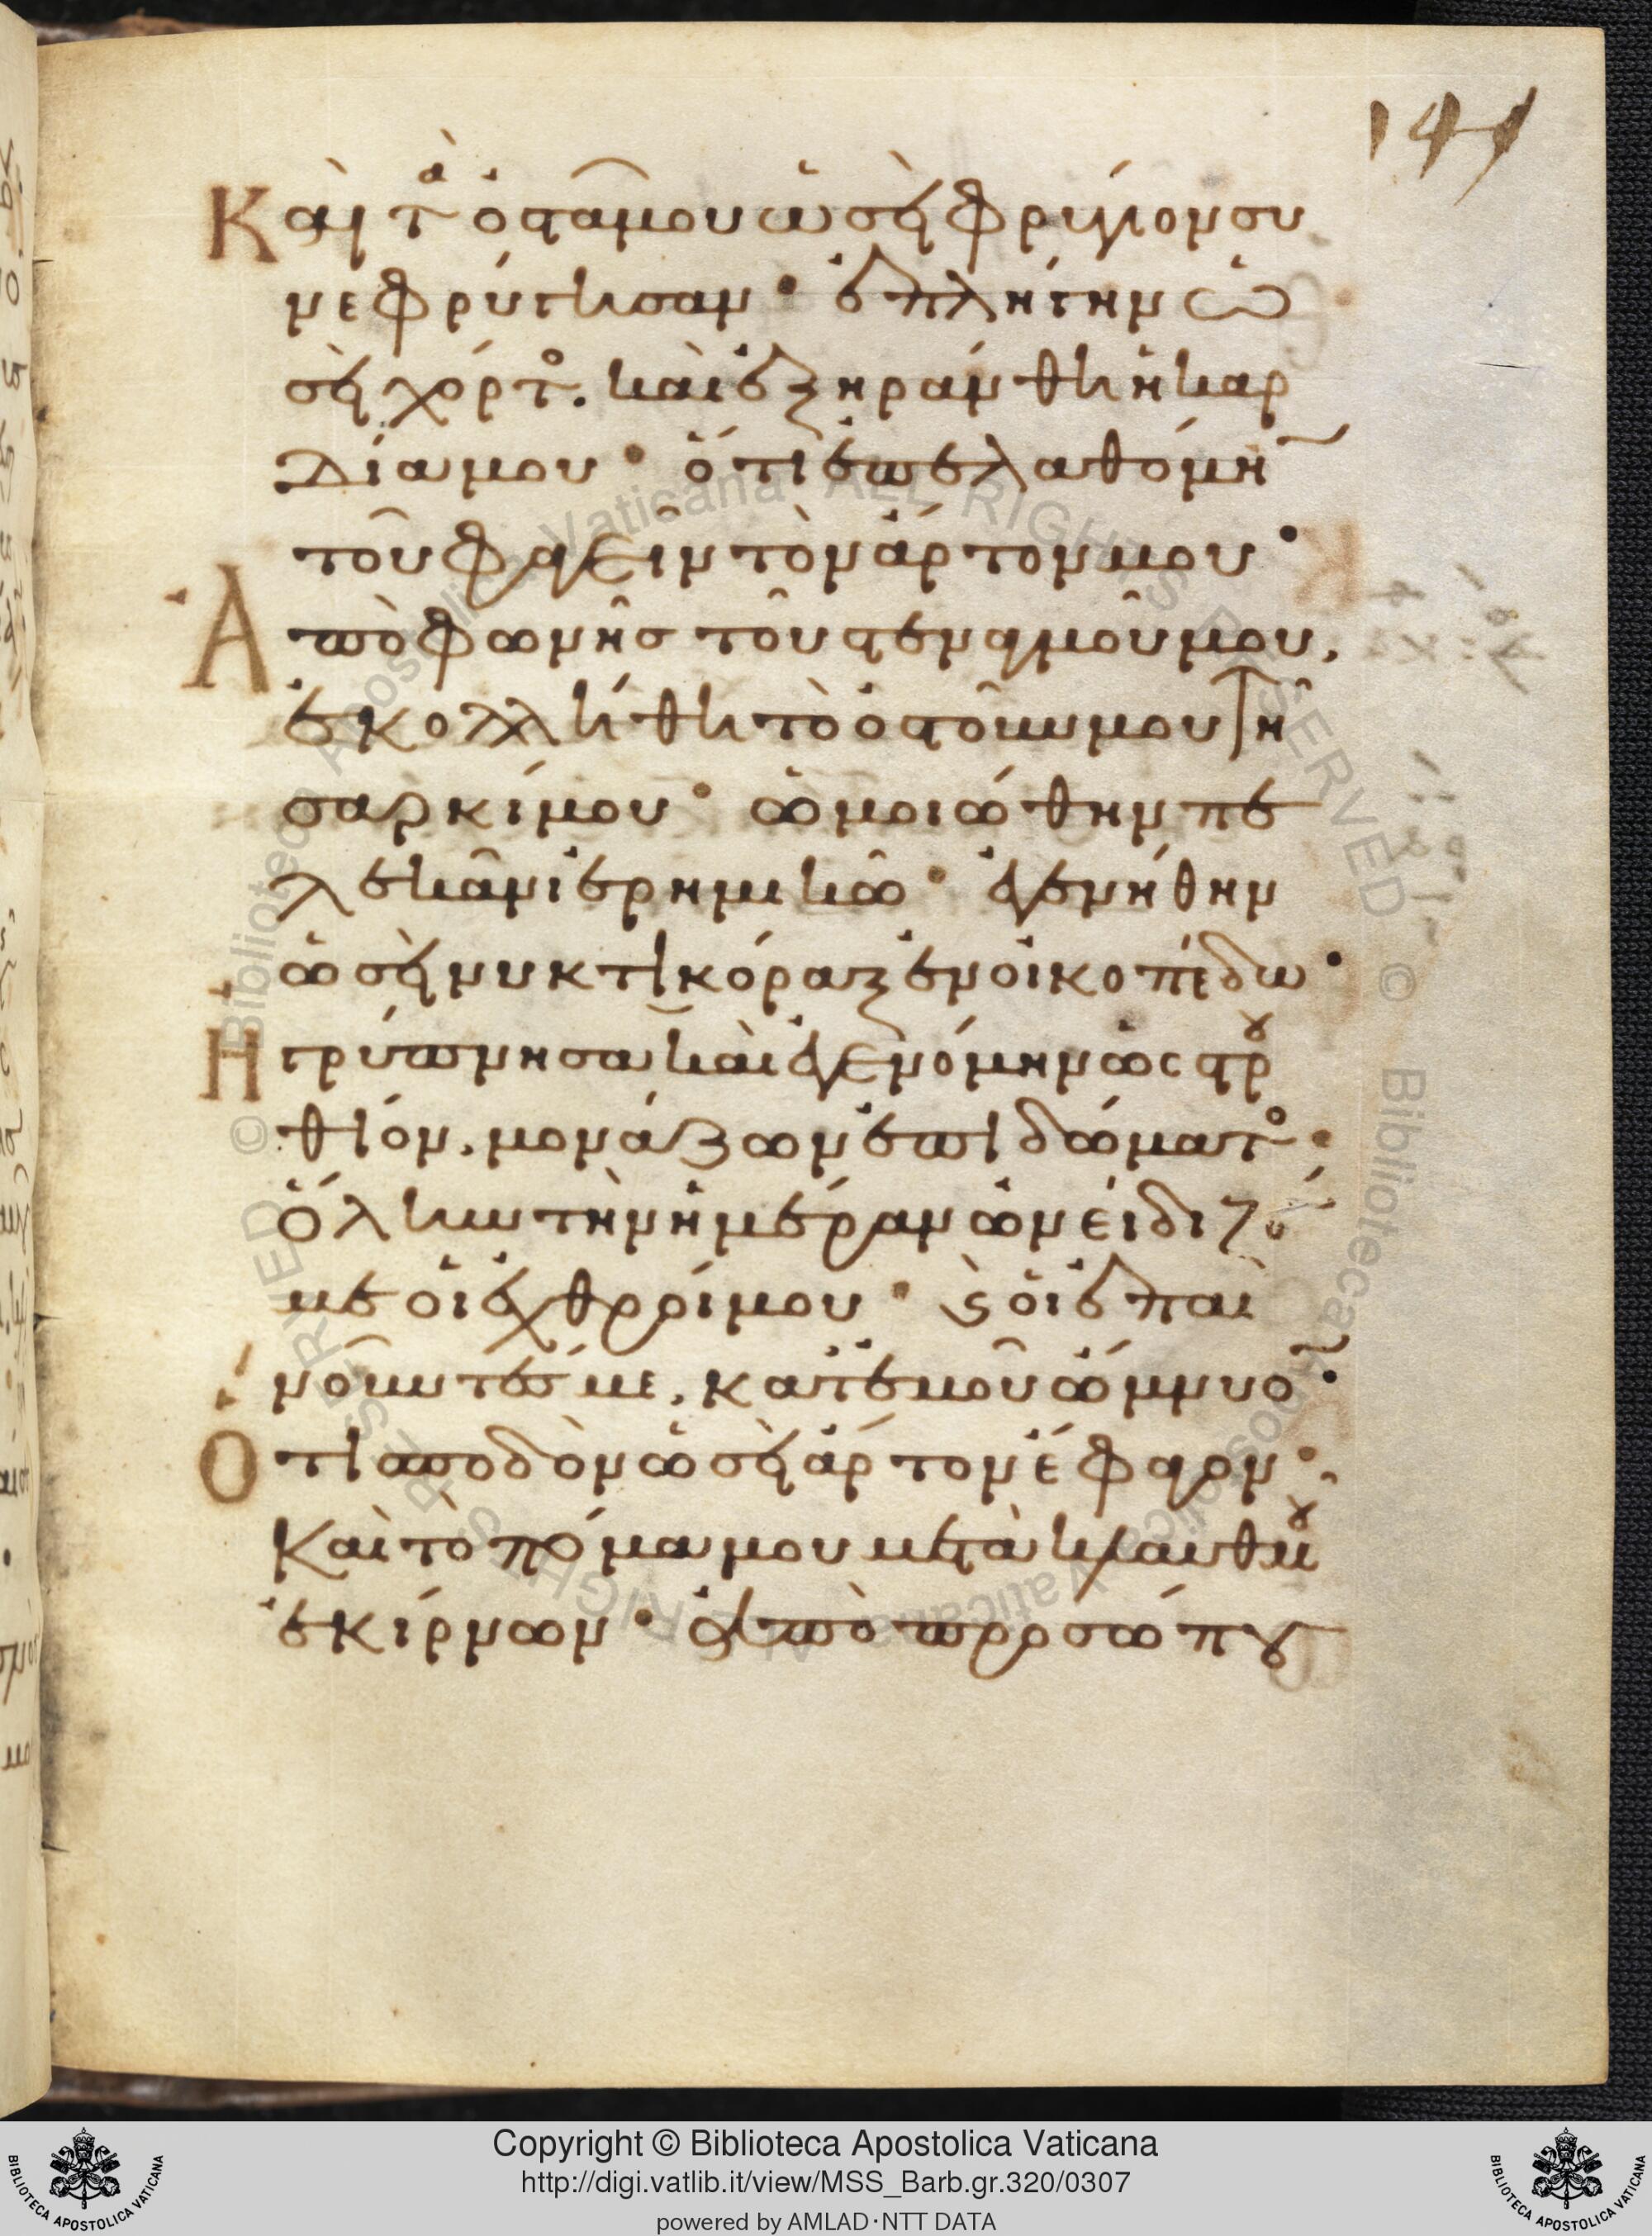 149
Καὶ τὰ ὀστᾶ μου ὡσεὶ φρύγιον συ
νεφρύγησαν· ἐπλήγην ὡ
σεὶ χόρτος. καὶ ἐξηράνθη ἡ καρ
δία μου· ὅτι ἐπελαθόμην
τοῦ φαγεῖν τὸν ἄρτον μου·
Ἀπὸ φωνῆς τοῦ στεναγμοῦ μου,
ἐκολλήθη τὸ ὀστοῦν μου τῆ
σαρκί μου· ὡμοιώθην πε
λεκᾶνι ἐρημικῶ· ἐγενήθην
ὡσεὶ νυκτικόραξ ἐν οἰκοπέδω·
Ἠγρύπνησα καὶ ἐγενόμην ὡς στρου
θίον, μονάζων ἐπὶ δώματος·
Ὅλην τὴν ἡμέραν ὠνείδιζόν
με οἱ ἐχθροί μου· καὶ οἱ ἐπαι
νοῦντές με, κατ' ἐμοῦ ὤμνυον·
Ὅτι σποδὸν ὡσεὶ ἄρτον ἔφαγον·
Καὶ τὸ πόμα μου μετὰ κλαυθμοῦ
ἐκίρνων· Ἀπὸ προσώπου
Copyright © Biblioteca Apostolica Vaticana
http://digi.vatlib.it/view/MSS_Barb.gr.320/0307
powered by AMLAD·NTT DATA
BIBLIOTECA APOSTOLICA VATICANA
BIBLIOTECA APOSTOLICA VATICANA